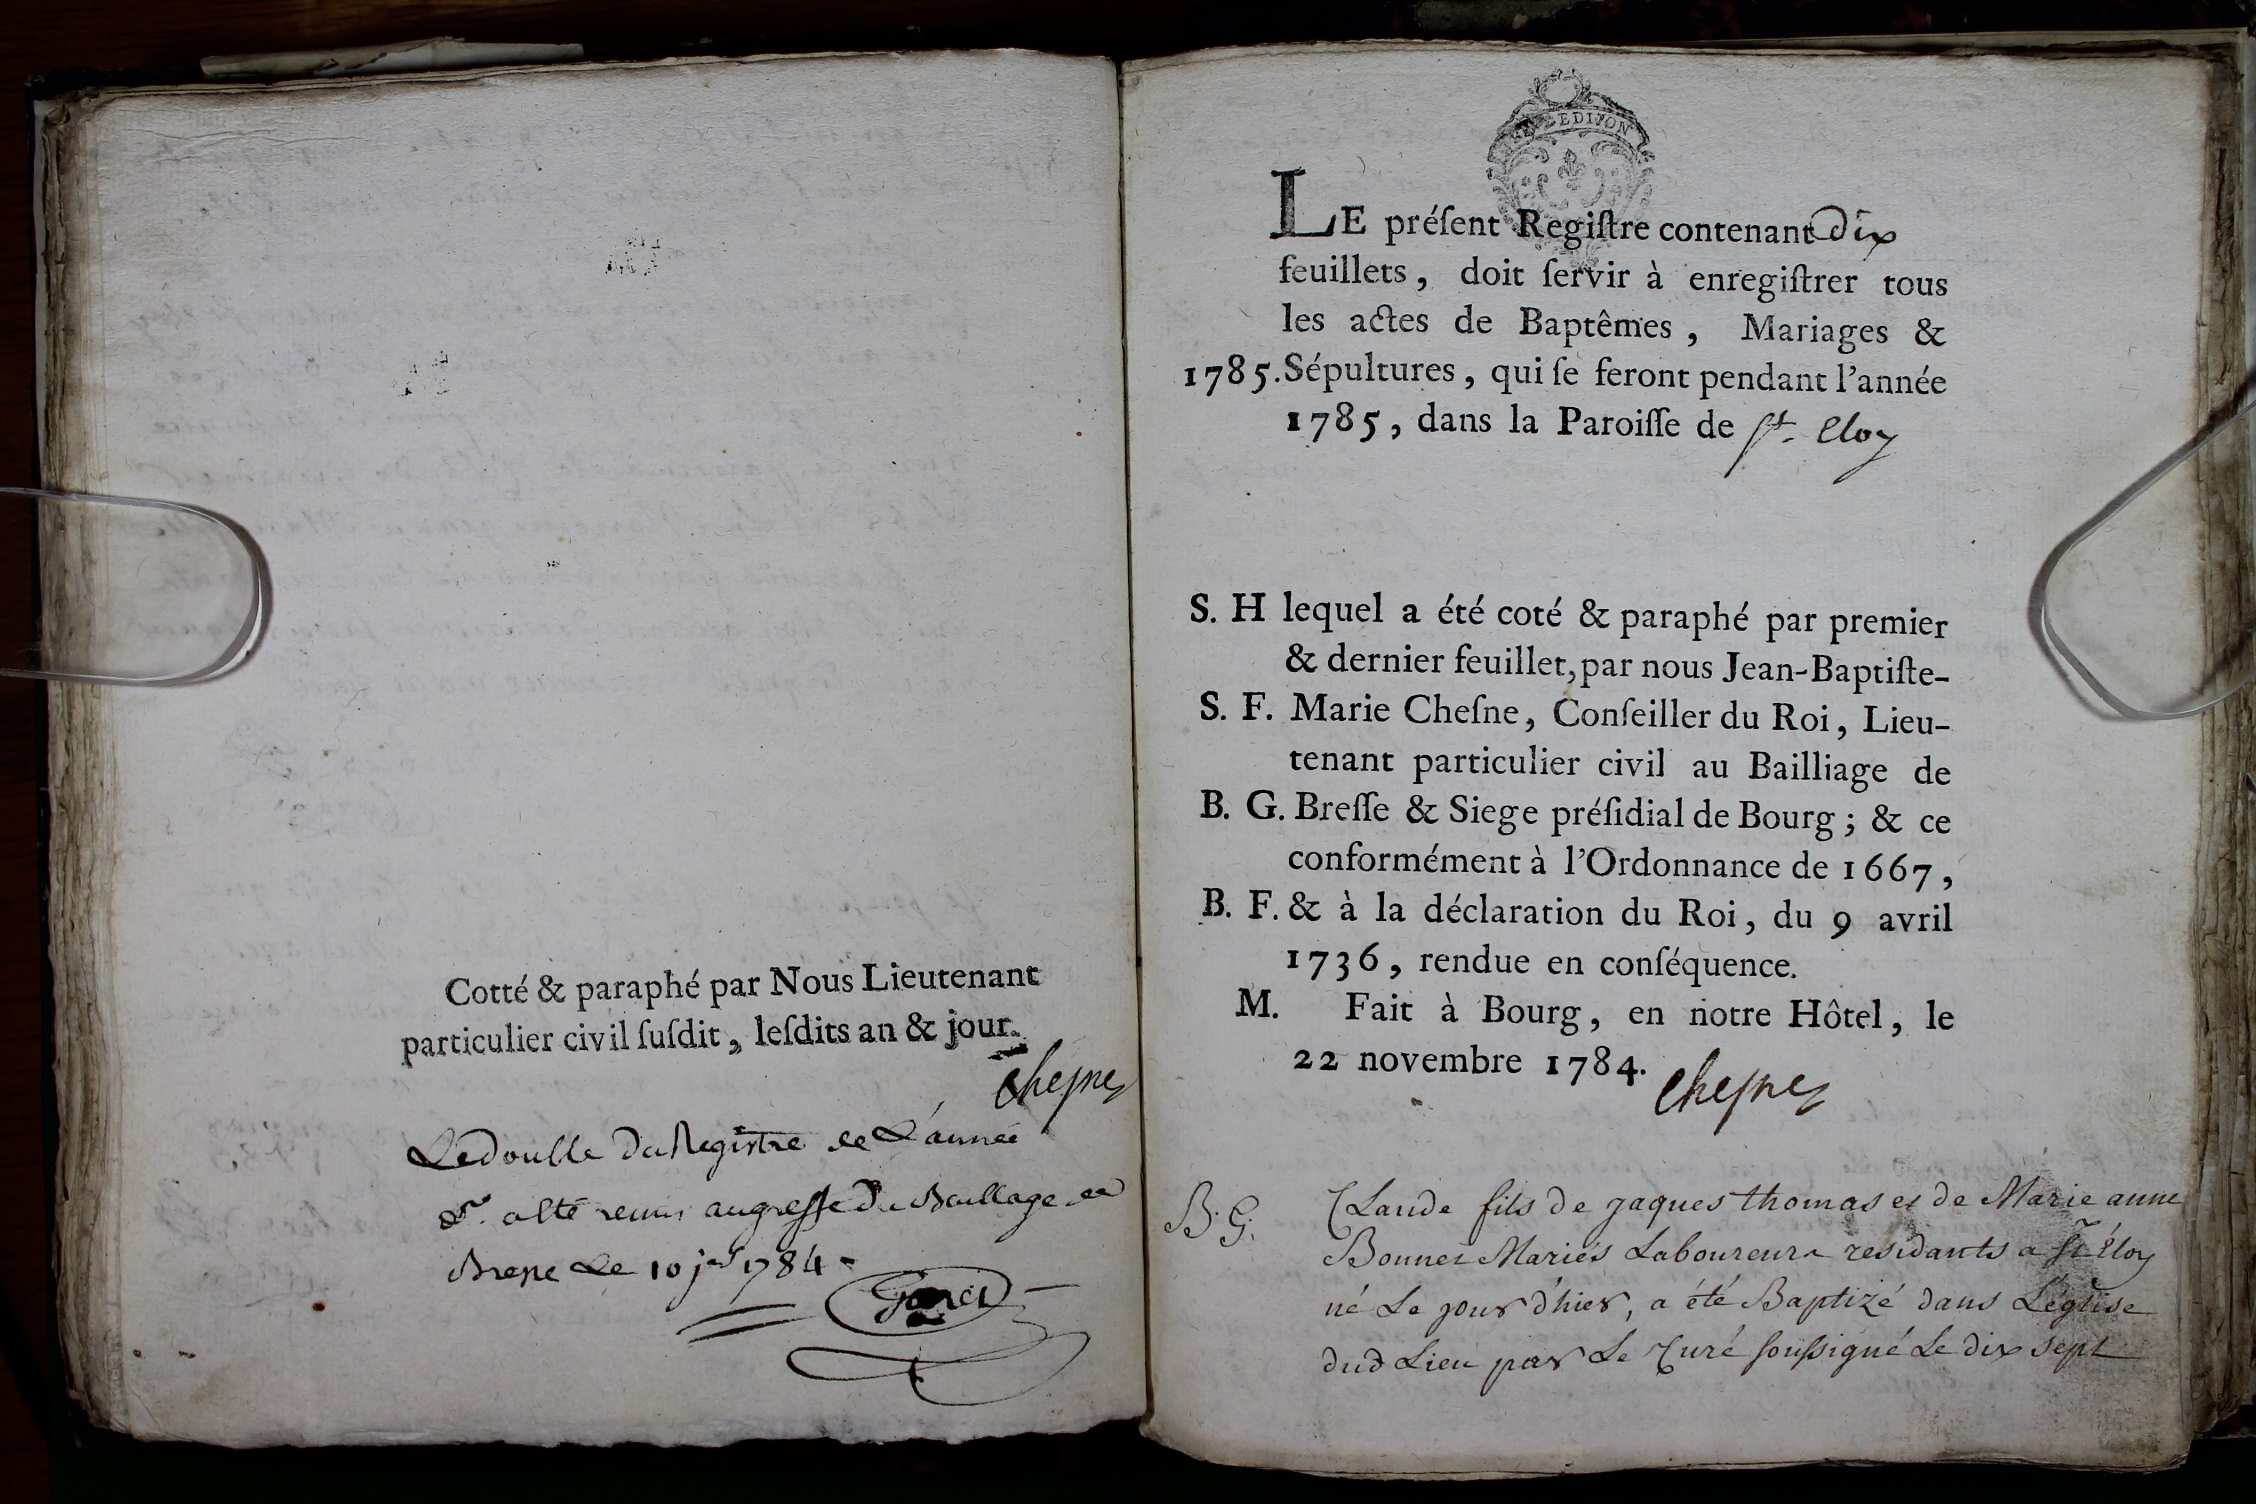 Cotté & paraphé par Nous Lieutenant
particulier civil ſuſdit, leſdits an & jour.
Cheſne
Le double du Registre de L'année
a été remis au greffe du Bailliage de
Breſſe Le 10 1784
DIJON
LE préſent Regiſtre contenant dix
feuillets, doit ſervir à enregiſtrer tous
les actes de Baptêmes, Mariages &
1785. Sépultures, qui ſe feront pendant l'année
1785, dans la Paroiſſe de ſt. Eloy
S. H lequel a été coté & paraphé par premier
& dernier feuillet, par nous Jean-Baptiſte-
S. F. Marie Cheſne, Conſeiller du Roi, Lieu-
tenant particulier civil au Bailliage de
B. G. Breſſe & Siege préſidial de Bourg; & ce
conformément à l'Ordonnance de 1667,
B. F. & à la déclaration du Roi, du 9 avril
1736, rendue en conſéquence.
M. Fait à Bourg, en notre Hôtel, le
22 novembre 1784.
Cheſne
B. G. Claude fils de jaques thomas et de Marie anne
Bonnet Mariés Laboureurs residants a St Éloy
né Le jour d'hier, a été Baptizé dans L'église
dud Lieu par Le Curé souſsigné Le dix sept